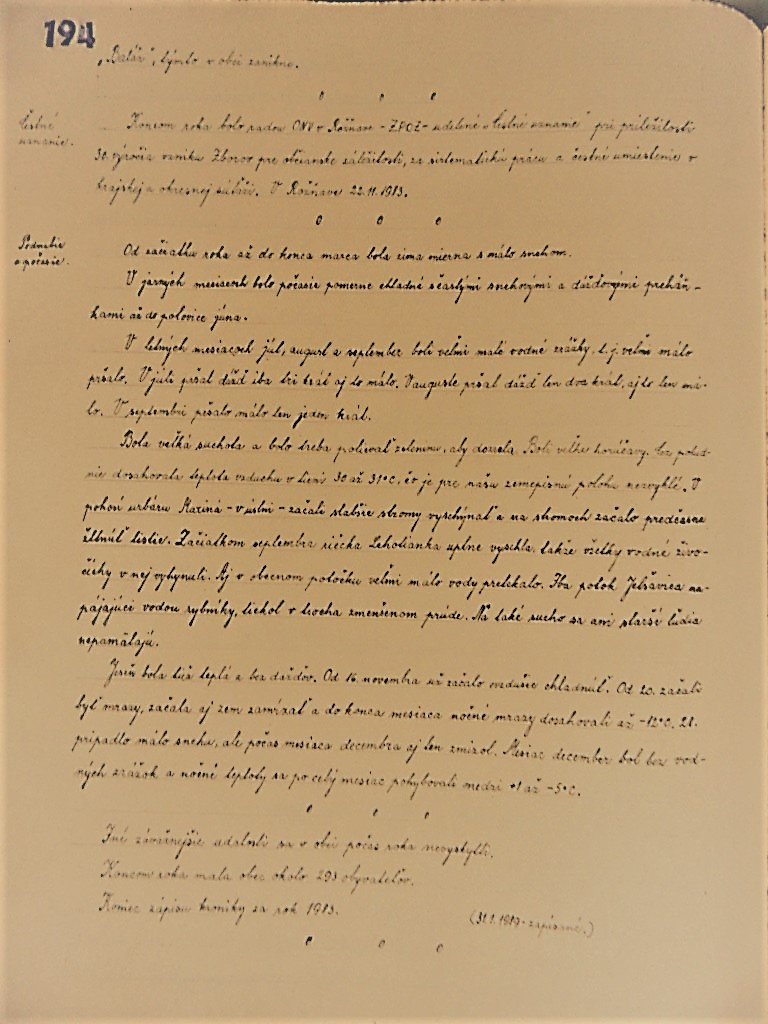 194
„Baláž", týmto v obci zanikne.
Čestné
uznanie.
Koncom roka bolo radou ONV v Rožňave - ZPOZ - udelené „Čestné uznanie" pri príležitosti
30. výročia vzniku Zborov pre občianske záležitosti, za sistematickú prácu a čestné umiestenie v
krajskej a okresnej súťaži. V Rožňave 22.11.1983.
Podnebie
a počasie.
Od začiatku roka až do konca marca bola zima mierna s málo snehom.
V jarných mesiacoch bolo počasie pomerne chladné s častými snehovými a dážďovými prehán-
kami až do polovice júna.
V letných mesiacoch júl, august a september boli veľmi malé vodné zrážky, t.j. veľmi málo
pršalo. V júli pršal dážď iba tri krát aj to málo. V auguste pršal dážď len dva krát, aj to len má-
lo. V septembri pršalo málo len jeden krát.
Bola veľká suchota a bolo treba polievať zeleninu, aby dozrela. Boli veľké horúčavy. Cez polud-
nie dosahovala teplota vzduchu v tieni 30 až 31°C, čo je pre našu zemepisnú polohu nezvyklé. V
pohorí urbáru Kariná - v úslní - začali slabšie stromy vyschýnať a na stromoch začalo predčasne
žltnúť lístie. Začiatkom septembra riečka Lehotianka uplne vyschla, takže všetky vodné živo-
číchy v nej vyhynuli. Aj v obecnom potôčku veľmi málo vody pretekalo. Iba potok Jelšavica na-
pájajúci vodou rybníky, tiekol v trocha zmenšenom prúde. Na také sucho sa ani starší ľudia
nepamätajú.
Jeseň bola tiež teplá a bez dažďov. Od 16. novembra už začalo ovzdušie chladnúť. Od 20. začali
byť mrazy, začala aj zem zamŕzať a do konca mesiaca nočné mrazy dosahovali až -12°C. 21.
pripadlo málo snehu, ale počas mesiaca decembra aj ten zmizol. Mesiac december bol bez vod-
ných zrážok a nočné teploty sa po celý mesiac pohybovali medzi +1 až -5°C.
Iné závažnejšie udalosti sa v obci počas roka nevyskytli.
Koncom roka mala obec okolo 293 obyvateľov.
Koniec zápisu kroniky za rok 1983.
(31.1.1989 - zapísané.)